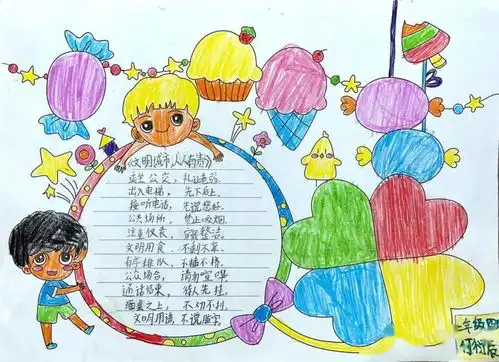 《文明城市人人有责》
乘坐公交,礼让老弱。
出入电梯,先下后上。
接听电话,先说您好。
公共场所,禁止吸烟。
注重仪表,穿戴整洁。
文明用食,不剩不弃。
有序排队,不插不挤。
公众场合,请勿喧哗。
通话结束,待人先挂。
之上,不切不利。
文明用语,不说脏字。
三年级